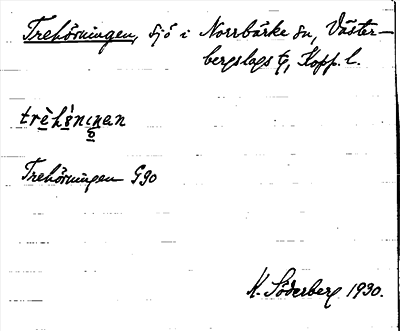 Trehörningen, sjö i Norrbärke sn, Väster-
bergslags tg, Kopp. l.
Trehörningen G90
K. Söderberg 1930.